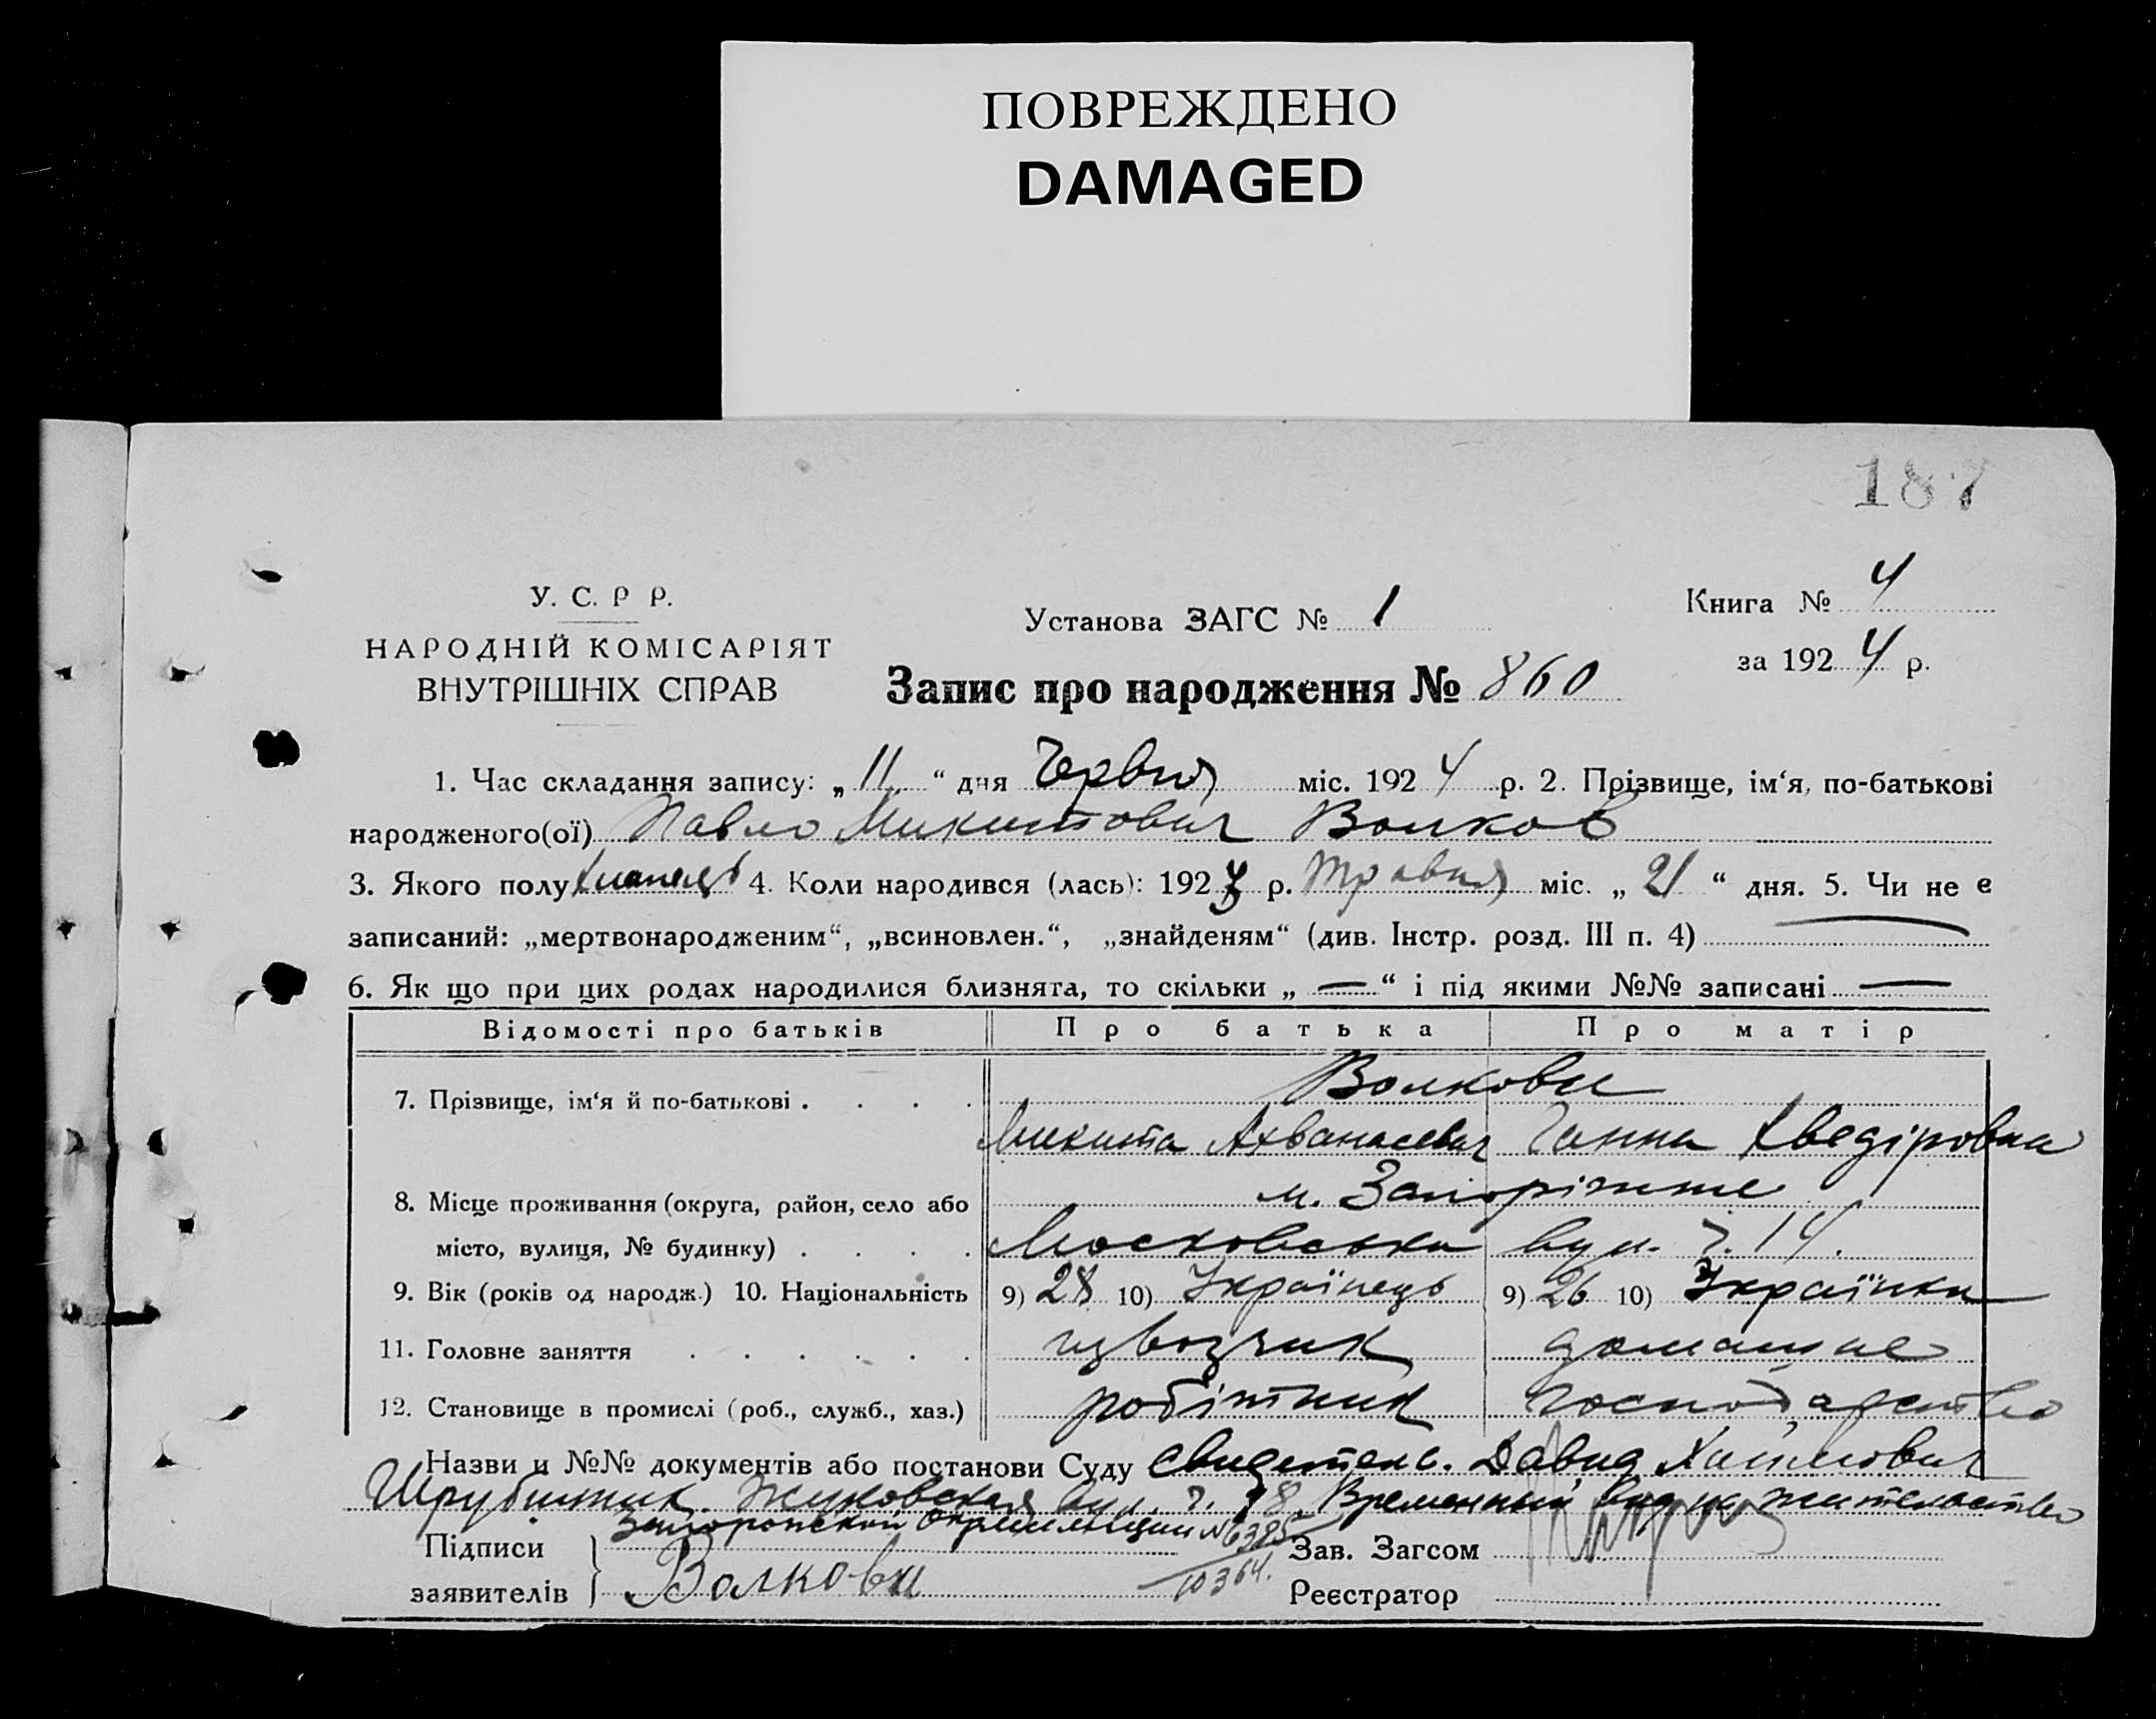 ПОВРЕЖДЕНО
DAMAGED
187
У. С. Р Р.
НАРОДНІЙ КОМІСАРІЯТ
ВНУТРІШНІХ СПРАВ
Установа ЗАГС № 1
Книга № 4
за 1924 р.
Запис про народження № 860
1. Час складання запису: „11“ дня Червня міс. 1924 р. 2. Прізвище, ім‘я, по-батькові
народженого(ої) Павло Микитович Волков
3. Якого полу Хлопець 4. Коли народився (лась): 192 р. Травня міс. „21“ дня. 5. Чи не є
записаний: „мертвонародженим“, „всиновлен.“, „знайденям“ (див. Інстр. розд. III п. 4)
6. Як що при цих родах народилися близнята, то скільки „—“ і під якими №№ записані —
Відомості про батьків Про батька Про матір
7. Прізвище, ім‘я й по-батькові . . . . Волкови
Микита Ахванасевич Ганна Хведіровна
8. Місце проживання (округа, район, село або м. Запоріжже
місто, вулиця, № будинку) . . . . Московська вул. ч. 14.
9. Вік (років од народж.) 10. Національність 9) 28 10) Українець 9) 26 10) Українка
11. Головне заняття . . . . . . извозчик домашне
12. Становище в промислі (роб., служб., хаз.) робітник господарство
Назви и №№ документів або постанови Суду свидетель. Давид Хаимович
Жуковская вул. ч. 78. Временный вид на жительство
Підписи Запорожской Окрмилиции № 6385
10364.
заявителів Волкови
Зав. Загсом
Реєстратор